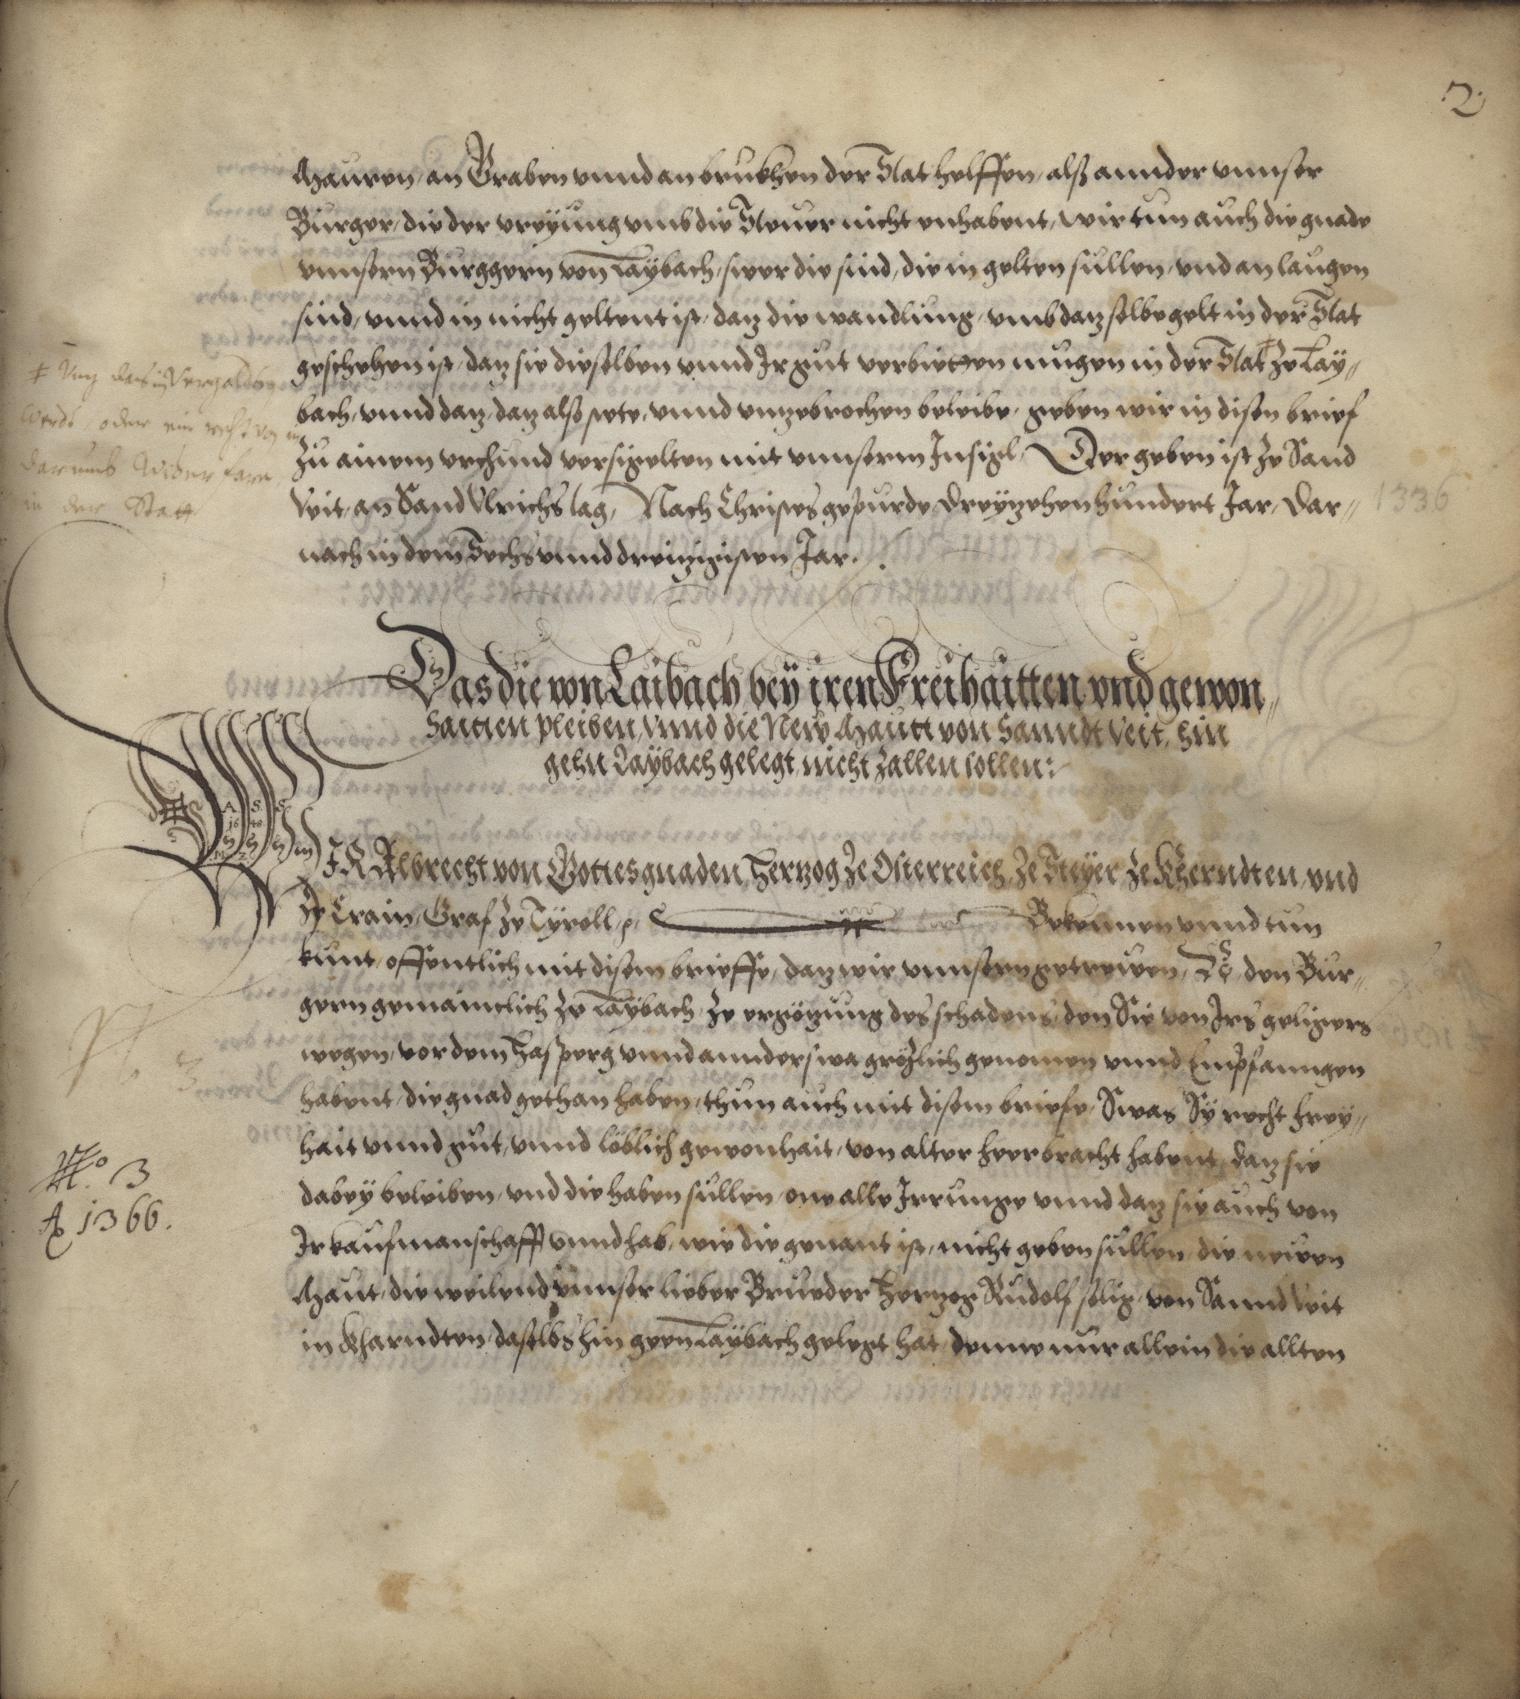 2
Mauren, an Graben vnnd an brukhen der Stat helffen, alß annder vnnser
Burger, die der vreÿung vmb die Steuer nicht enhabent, wir tun auch die gnade
vnnsern Burggern von Laÿbach, swer die sind, die in gelten sullen, vnd an laugen
sind, vnnd in nicht geltent ist, daz die wandlung, vmb daz selbe gelt in der Stat
geschehen ist, daz sie dieselben vnnd Ir gut verbietten mugen in der Stat ‡ ze Laÿ„
bach, vnnd daz, daz alß stete, vnnd vnzebrochen beleibe, geben wir in disen brief
zu ainem vrchund versigelten mit vnnserm Insigl, Der geben ist ze Sand
Veit, an Sand Vlrichs tag, Nach Christes gepurde dreÿzehen hundert Jar, Dar„
nach in dem Sechs vnnd dreizigisten Jar.
‡ Vnz das in vergolden
werde, oder ein recht von in
darumb widerfare
in der Statt
1336
Das die von Laibach beÿ iren Freihaitten vnd gewon„
haitten pleiben, vnnd die New Mautt von Sanndt Veit, hin
gehn Laÿbach gelegt, nicht zallen sollen:
WIR Albrecht von Gottes gnaden, Hertzog Ze Osterreich, Ze Steÿer, Ze Kherndten, vnd
Ze Crain, Graf Ze Tÿroll, Bekennen vnnd tun
kunt, offentlich mit disem brieffe, daz wir vnnsern getrewen, den Bur„
gern gemainclich Ze Laÿbach, Ze ergözung des schadens, den Sie von Irs geligers
wegen, vor dem Hasperg vnnd annderswa grözlich genomen vnnd Empfanngen
habent, die gnad gethan haben, thun auch mit disem briefe, Swas Sÿ recht freÿ„
hait vnnd gut, vnnd löblich gewonhait, von alter heerbracht habent, daz sie
dabeÿ beleiben, vnd die haben sullen, one alle Irrunge vnnd daz sie auch von
Ir kaufmanschafft vnnd hab, wie die genant ist, nicht geben sullen, die newen
Maut, die weilend vnnser lieber Brueder Herzog Rudolf selig, von Sannd Veit
in Kharndten, daselbs hin geen Laÿbach gelegt hat, denne nur allein die allten
No. 3
No. 3
Ao 1366.